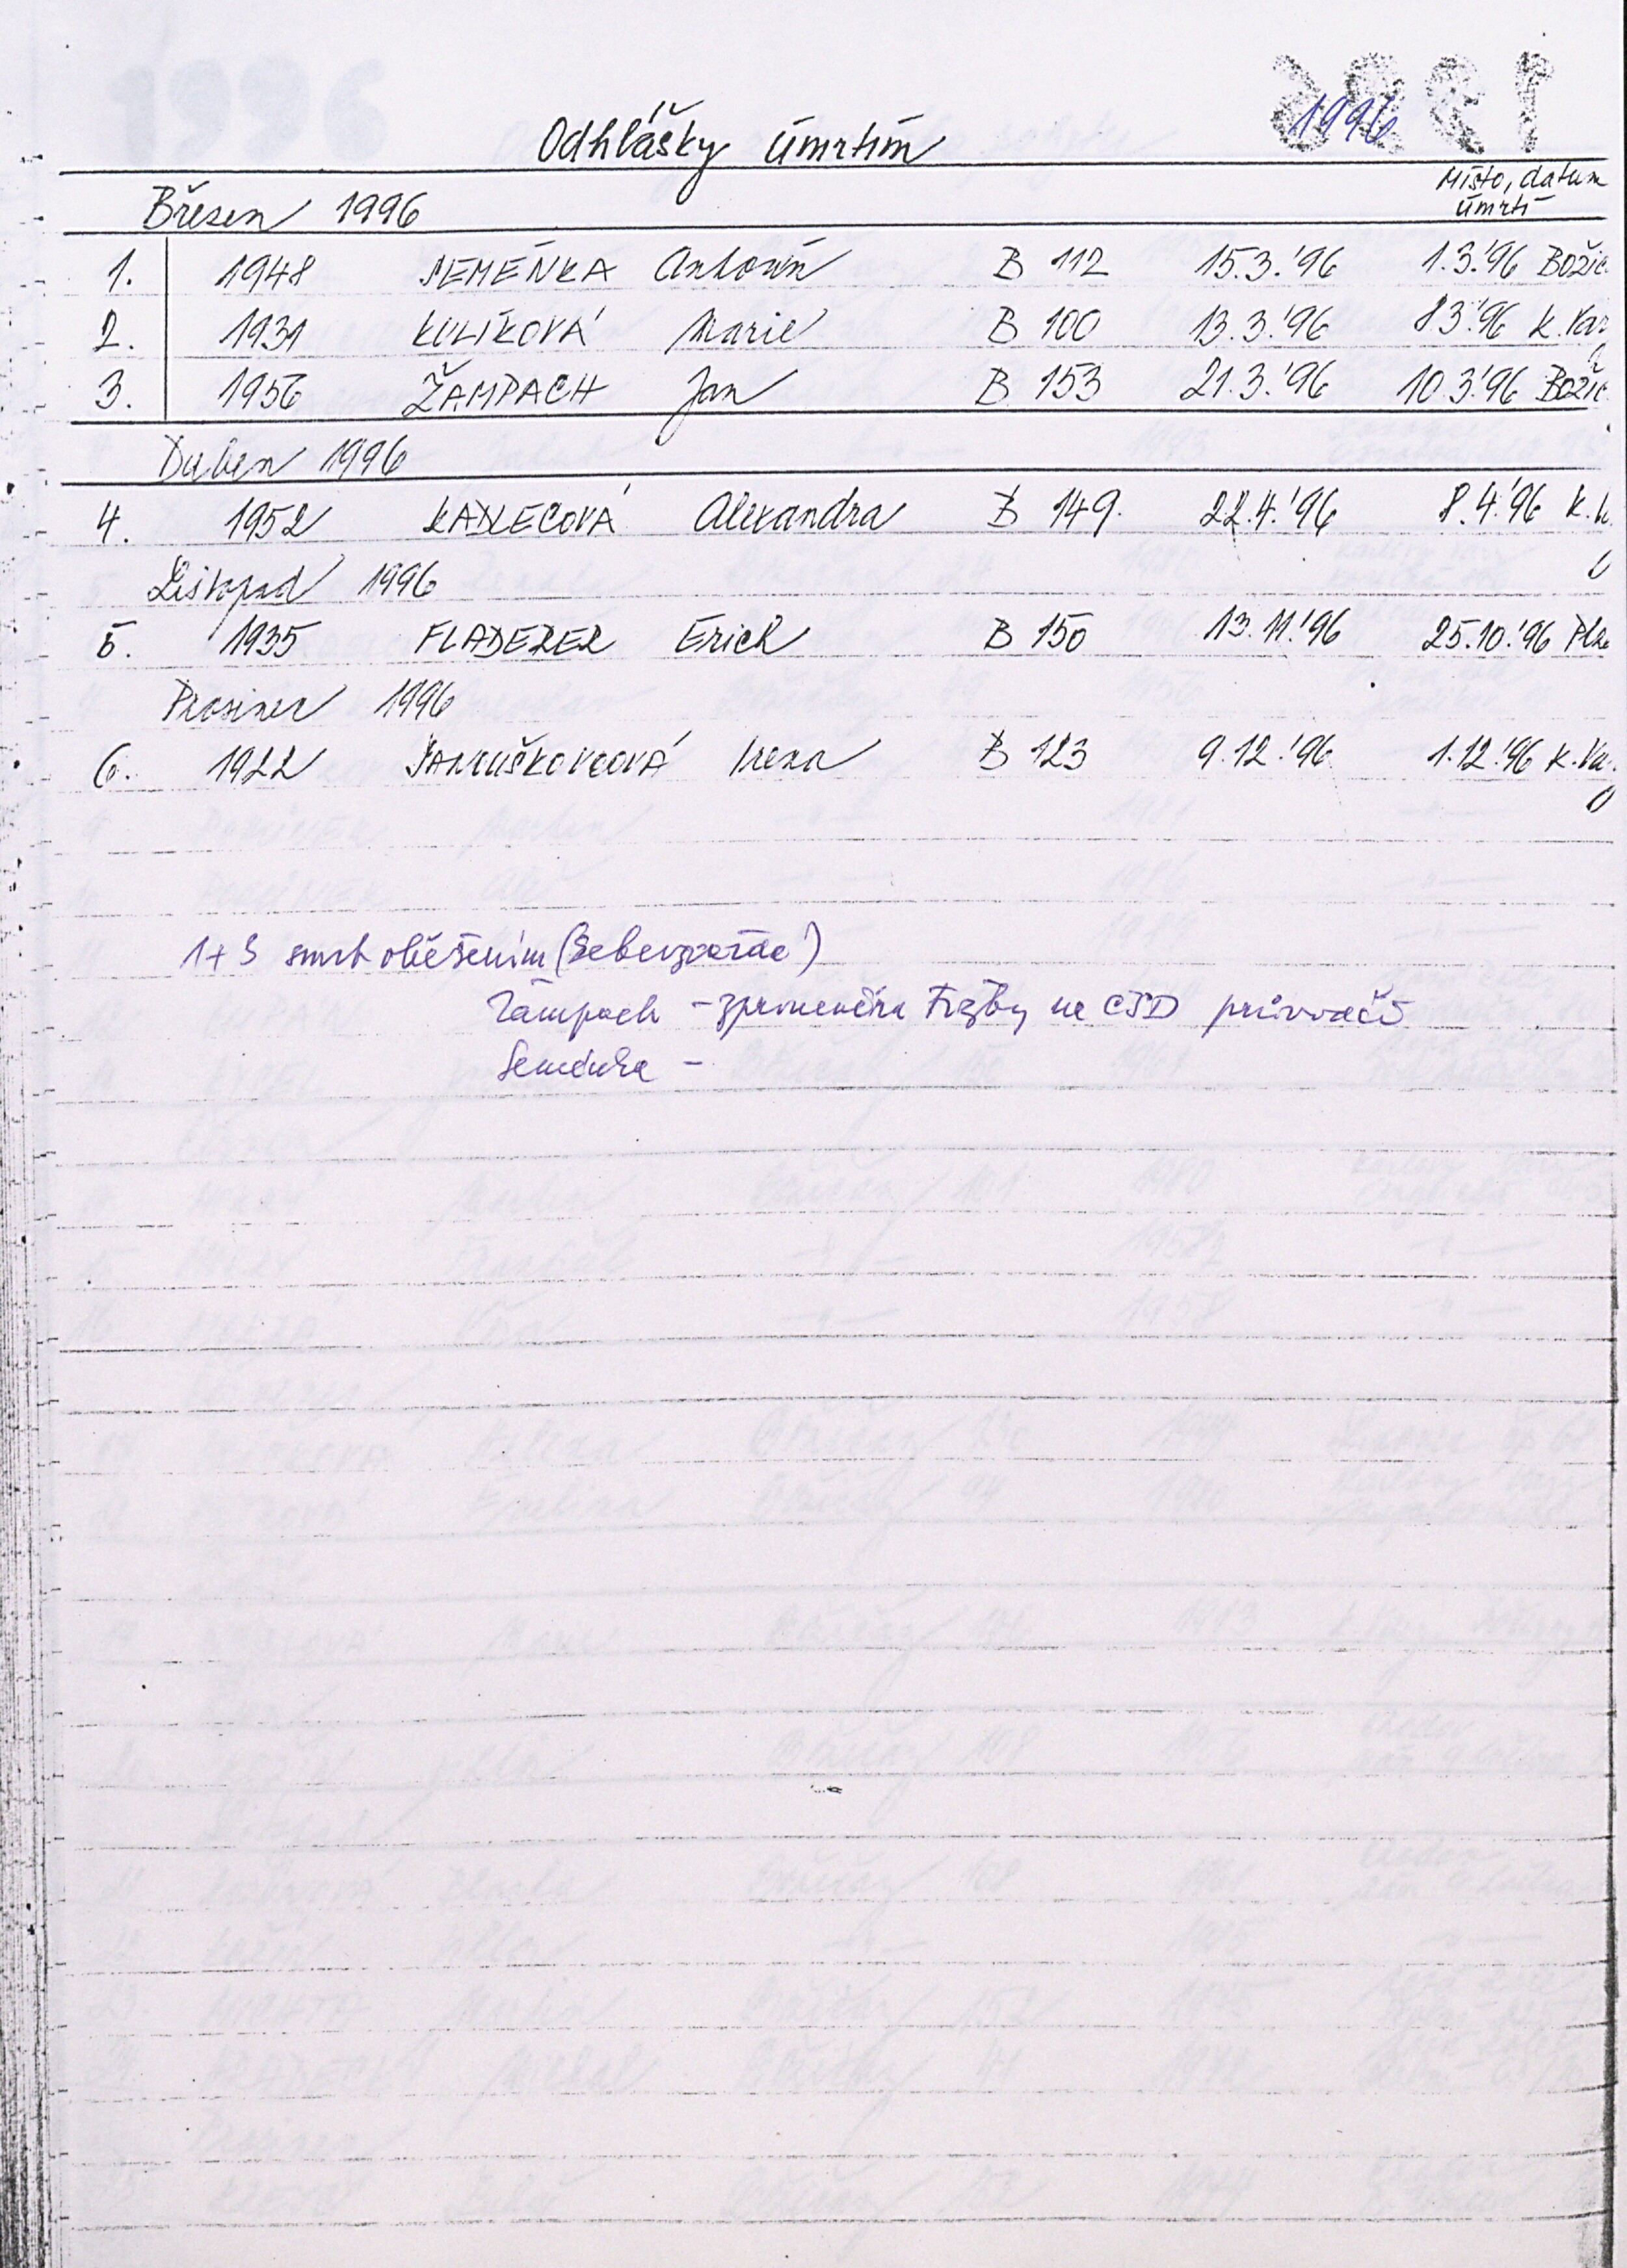 1996
Odhlášky úmrtím
Březen 1996 Místo, datum
úmrtí
1. 1948 SEMEŇKA Antonín B 112 15.3.'96 1.3.'96 Božič.
2. 1931 KULÍKOVÁ Marie B 100 13.3.'96 8.3.'96 K.Var
3. 1956 ŽAMPACH Jan B 153 21.3.'96 10.3.'96 Božič
Duben 1996
4. 1952 KADLECOVÁ Alexandra B 149. 22.4.'96 8.4.'96 K.
Listopad 1996
5. 1935 FLADERER Erich B 150 13.11.'96 25.10.'96 Plz
Prosinec 1996
6. 1922 Irena B 123 9.12.'96 1.12.'96 K.Va
1+3 smrt oběšením (sebevražda)
Žampach - zpronevěra tržby na ČSD průvodčí
Semeňka -